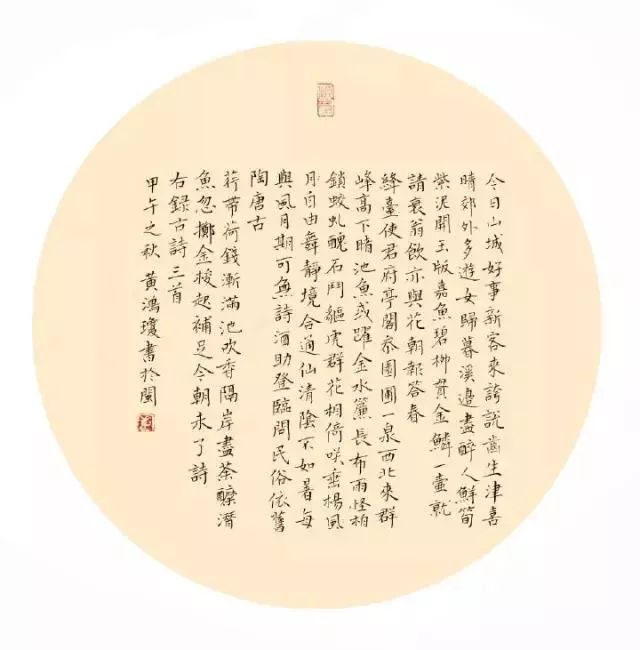 今日山城好事新客來誇説齒生津喜
晴郊外多遊女歸暮溪邊盡醉人鮮筍
紫泥開玉版嘉魚碧柳貫金鱗一壷就
請衰翁飲亦與花朝報答春
絳臺使君府亭閣參園圃一泉西北來群
峰高下睹池魚或躍金水簾長布雨怪柏
鎖蛟虬醜石鬥貙虎群花相倚咲垂楊風
月自由舞靜境合通仙清陰不如暑每
與風月期可無詩酒助登臨問民俗依舊
陶唐古
荇帶荷錢漸滿池吹香隔岸盡荼醾潛
魚忽擲金梭起補足今朝未了詩
右録古詩三首
甲午之秋 黃鴻瓊書於閩